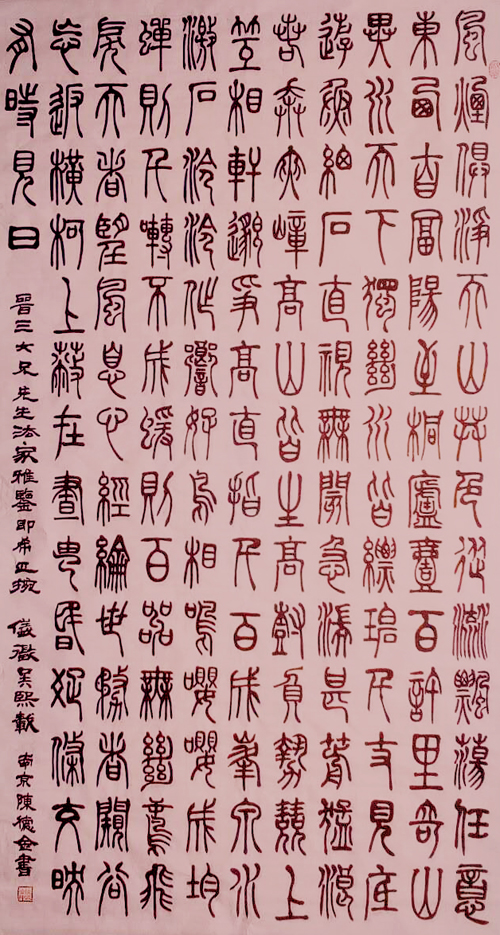 風煙俱淨天山共色從流飄蕩任意
東西自富陽至桐廬壹百許里奇山
異水天下獨絕水皆縹碧千丈見底
游魚細石直視無閡急湍甚箭猛浪
若奔夾嶂高山皆生高樹負勢競上
互相軒邈爭高直指千百成峯泉水
激石泠泠作響好鳥相鳴嚶嚶成均
蟬則千囀不成猨則百嘂無絕鳶飛
戾天者望風息心經綸世務者闚谷
忘返橫柯上蔽在晝昏疏條交映
有時見日
晉三大兄先生法家雅鑒即希正捥 儀徵吳熙載 南京陳德金書